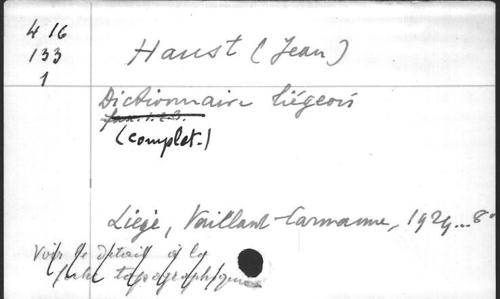 416
133
1
Haust (Jean)
Dictionnaire liégeois
fasc. 1. 2. 3.
(complet.)
Liège, Vaillant-Carmanne, 1929... 8°
Voir le détail à la
fiche topographique